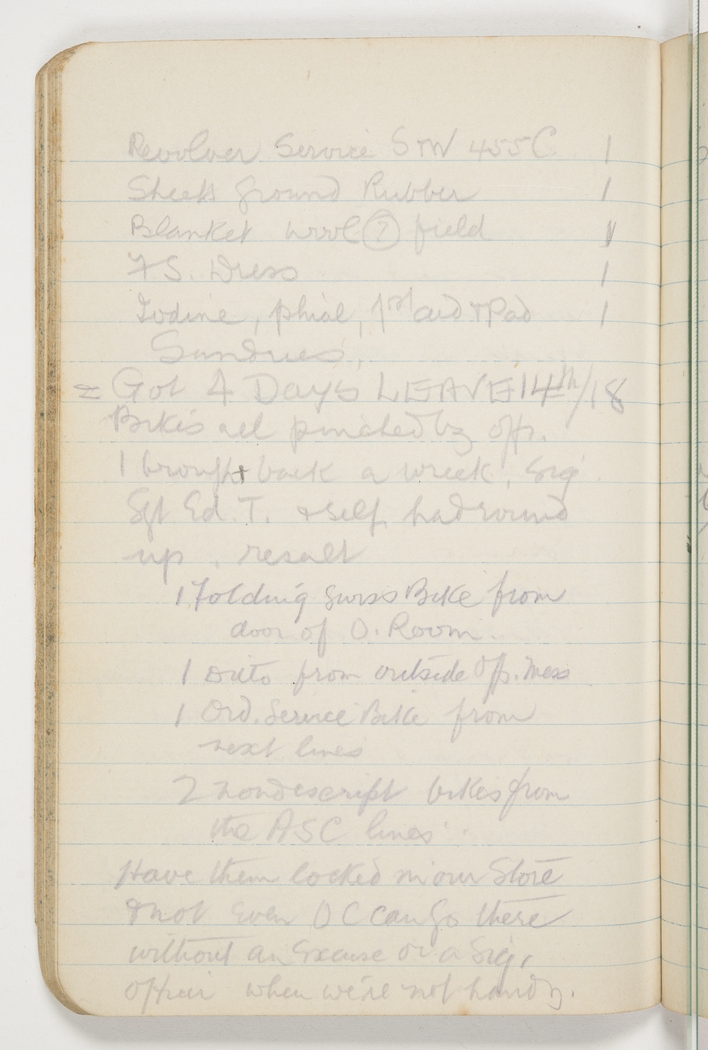 Revolver Service S&W 455C 1
Sheets ground Rubber 1
Blanket wool (?) field 1
F.S. Dress 1
Iodine, phial, 1st aid & Pad 1
Sundries,
= Got 4 Days LEAVE 14th/18
Bikes all pinched by offs.
I brought back a wreck, Sig
Sgt Ed. T. & self had round
up. result
1 Folding Swiss Bike from
door of O. Room.
1 Ditto from outside Off. Mess
1 Ord. Service Bike from
next lines
2 nondescript bikes from
the ASC lines.
Have them locked in our Store
& not even OC can go there
without an Excuse or a Sig,
officer when we're not handy.